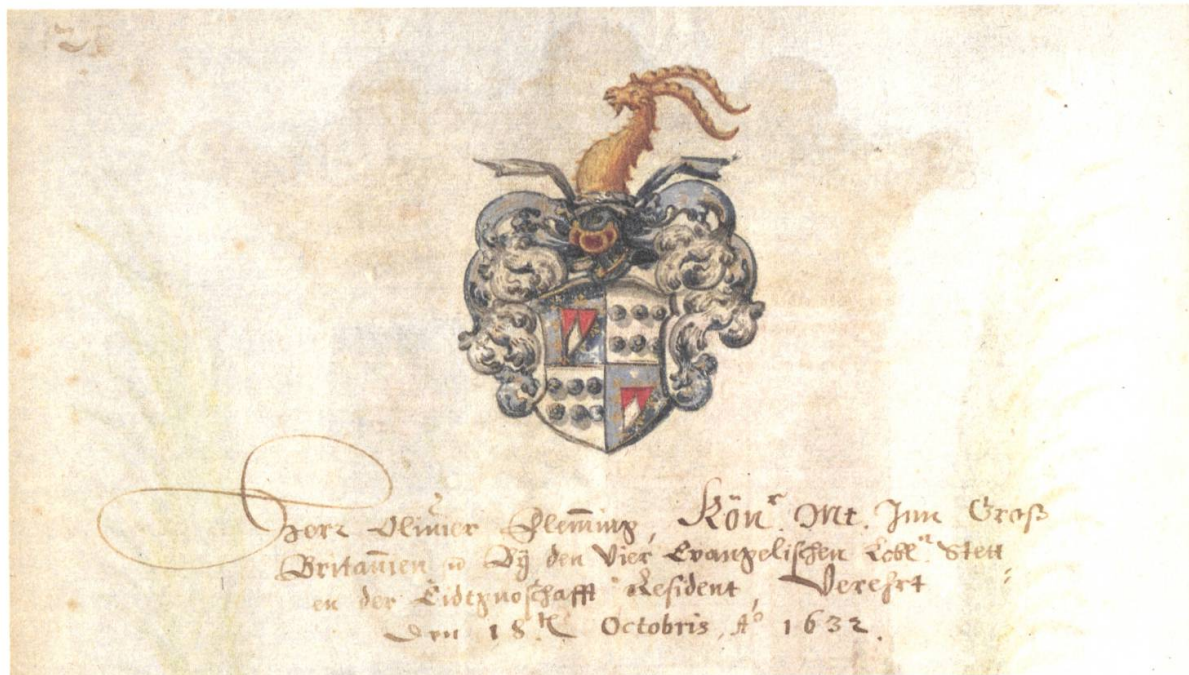 Herr Oliuier Fleming, Kön.r Mt. Jnn Groß
Britanien Bÿ den Vier Evangelischen Lobl.n Stett
en der Eidtgnoschafft Resident, Verehrt
Den 18.ten Octobris, Ao 1632.